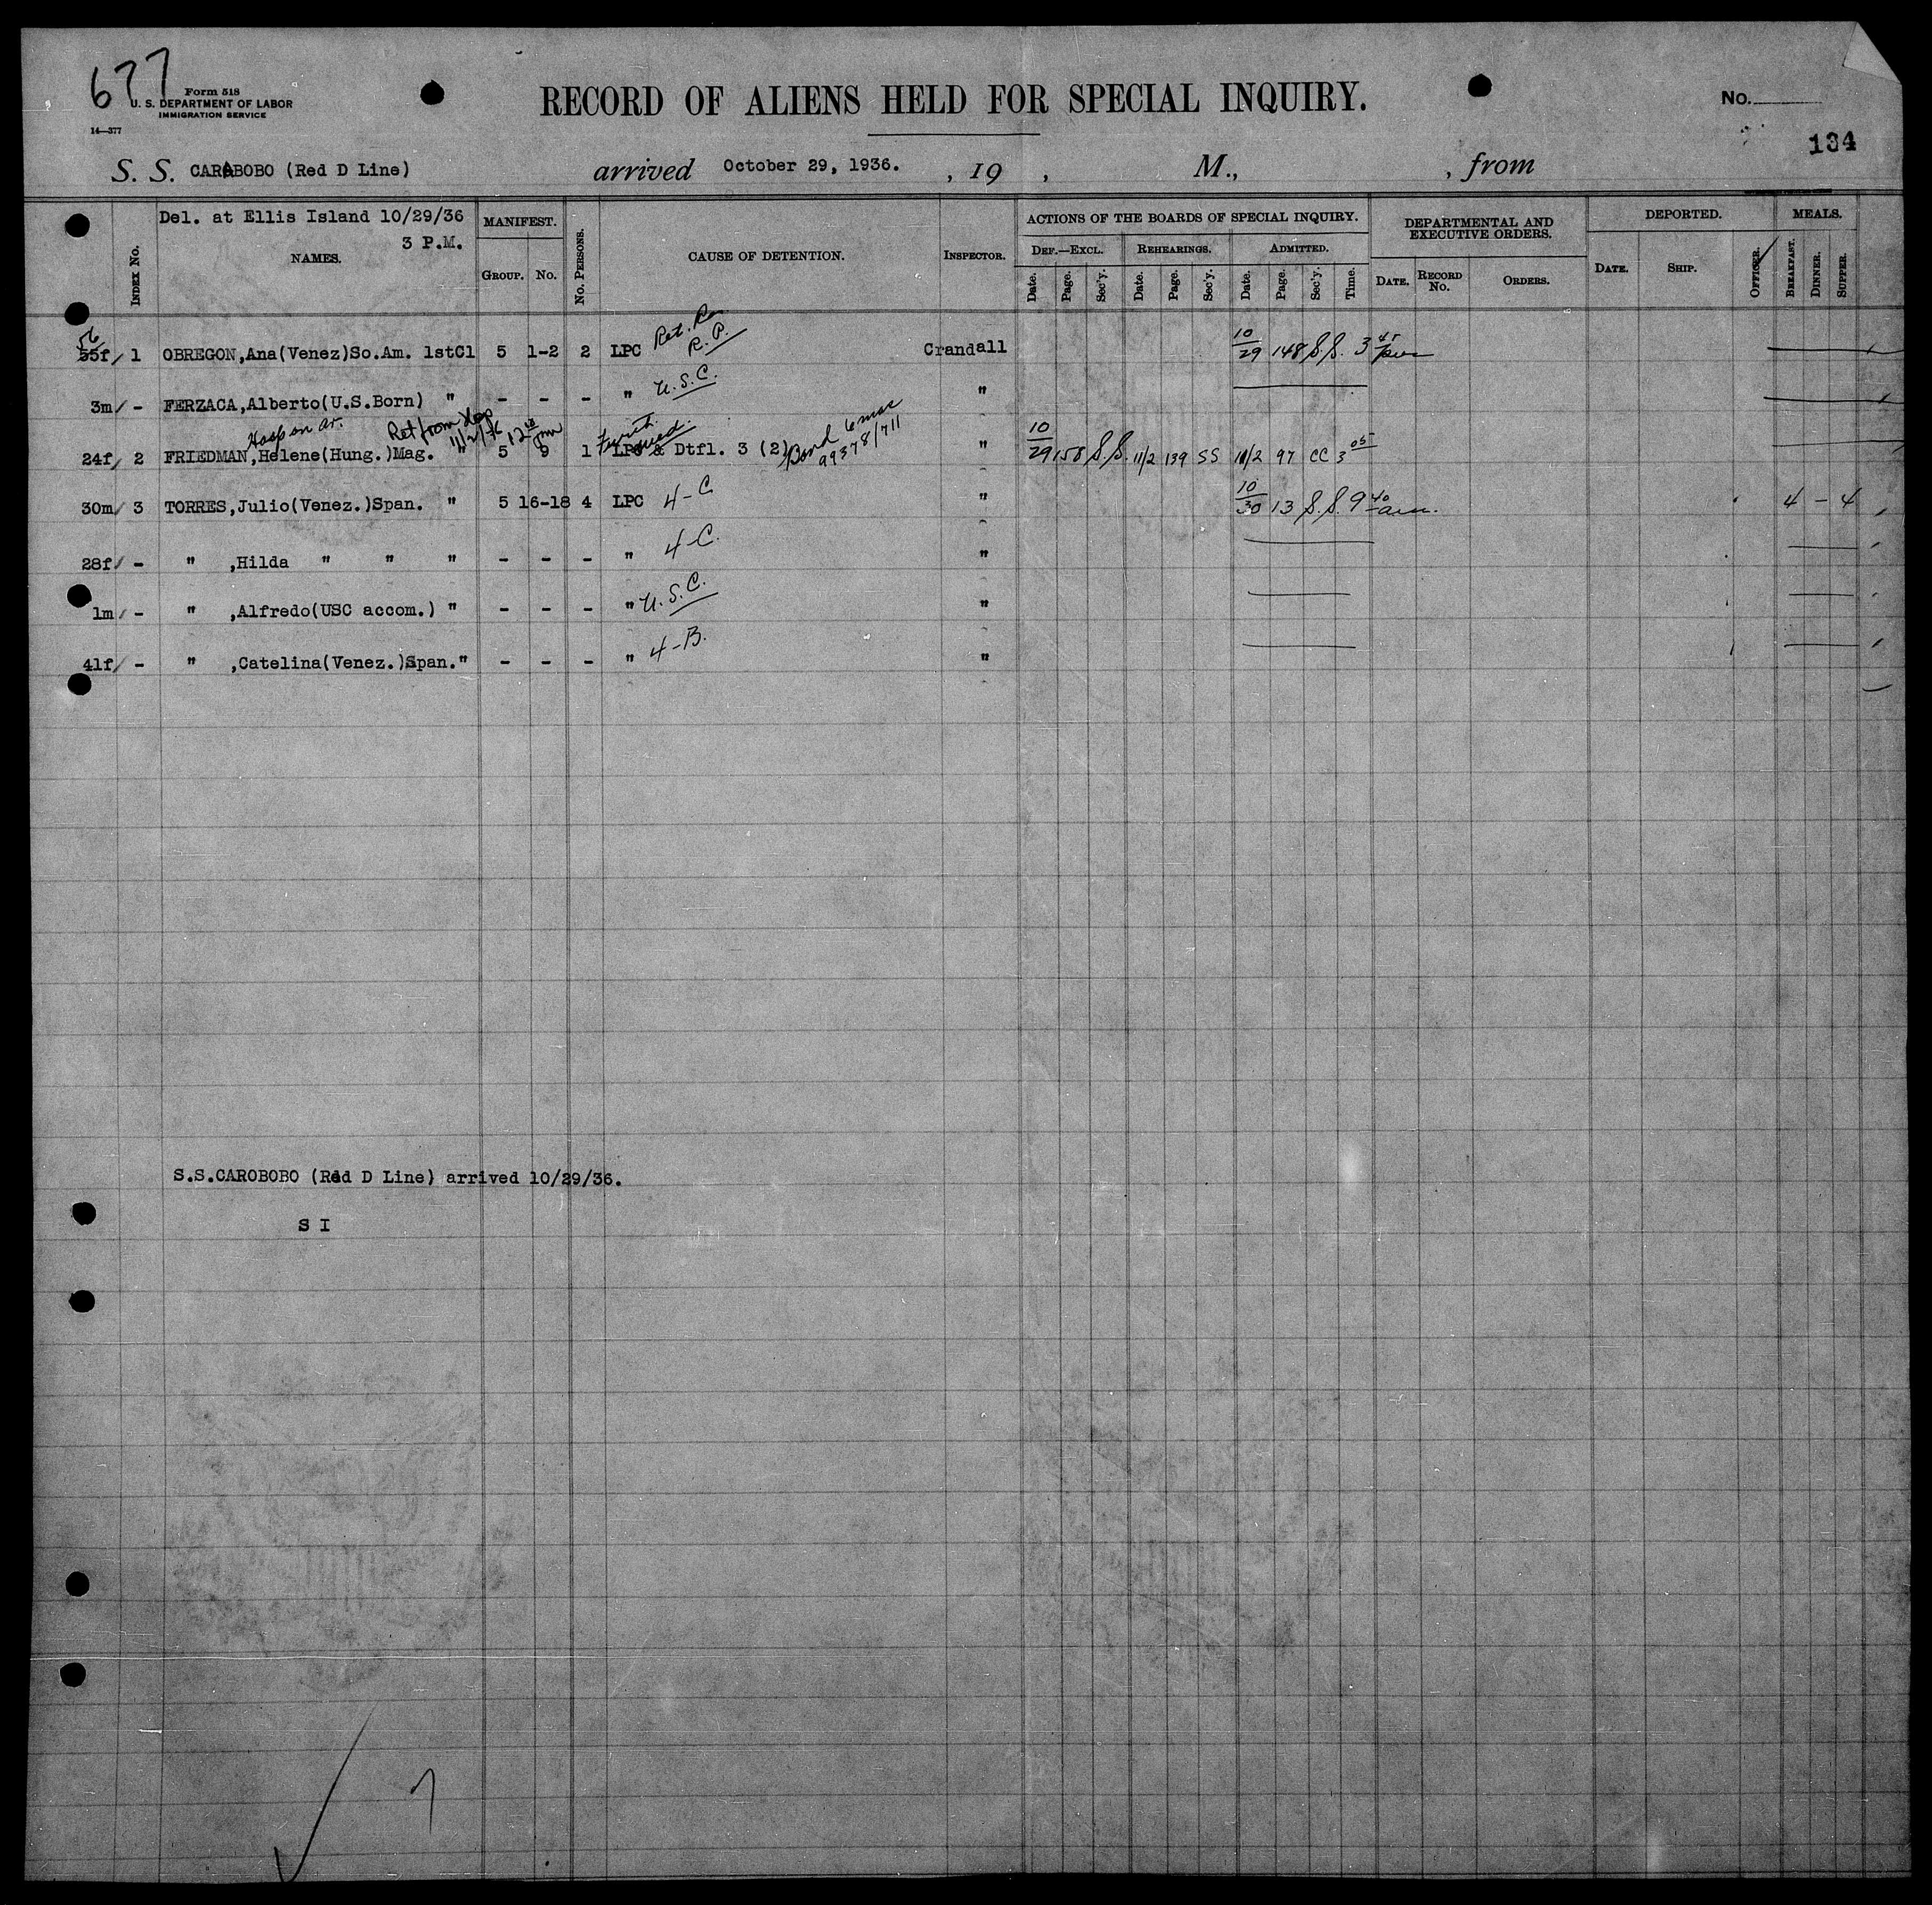 677
Form 518
U. S. DEPARTMENT OF LABOR
IMMIGRATION SERVICE
14—377
RECORD OF ALIENS HELD FOR SPECIAL INQUIRY.
No.
134
S. S. CARABOBO (Red D Line) arrived October 29, 1936. , 19 , M., , from
Del. at Ellis Island 10/29/36
3 P.M.
INDEX No. NAMES. MANIFEST. GROUP. No. No. PERSONS. CAUSE OF DETENTION. INSPECTOR. ACTIONS OF THE BOARDS OF SPECIAL INQUIRY. DEF.—EXCL. Date. Page. Sec'y. REHEARINGS. Date. Page. Sec'y. ADMITTED. Date. Page. Sec'y. Time. DEPARTMENTAL AND EXECUTIVE ORDERS. DATE. RECORD No. ORDERS. DEPORTED. DATE. SHIP. OFFICER. MEALS. BREAKFAST. DINNER. SUPPER.
56
55f/ 1 OBREGON,Ana(Venez)So.Am. 1stCl 5 1-2 2 LPC Ret. R.P. Crandall 10/29 148 S.S. 3 45 pm
3m/ - FERZACA,Alberto(U.S.Born) " - - - " U.S.C. "
Hosp on ar. Ret from Hosp 11/2/36 12 pm
24f/ 2 FRIEDMAN,Helene(Hung.)Mag. " 5 9 1 LPC & Dtfl. 3 (2) Bond 6 mos 99378/711 " 10/29 158 S.S. 11/2 139 SS 11/2 97 CC 3 05
30m/ 3 TORRES,Julio(Venez.)Span. " 5 16-18 4 LPC 4-C " 10/30 13 S.S. 9 40 am. 4 - 4
28f/ - " ,Hilda " " " - - - " 4-C. "
1m/ - " ,Alfredo(USC accom.) " - - - " U.S.C. "
41f/ - " ,Catelina(Venez.)Span." - - - " 4-B. "
S.S.CAROBOBO (Red D Line) arrived 10/29/36.
S I